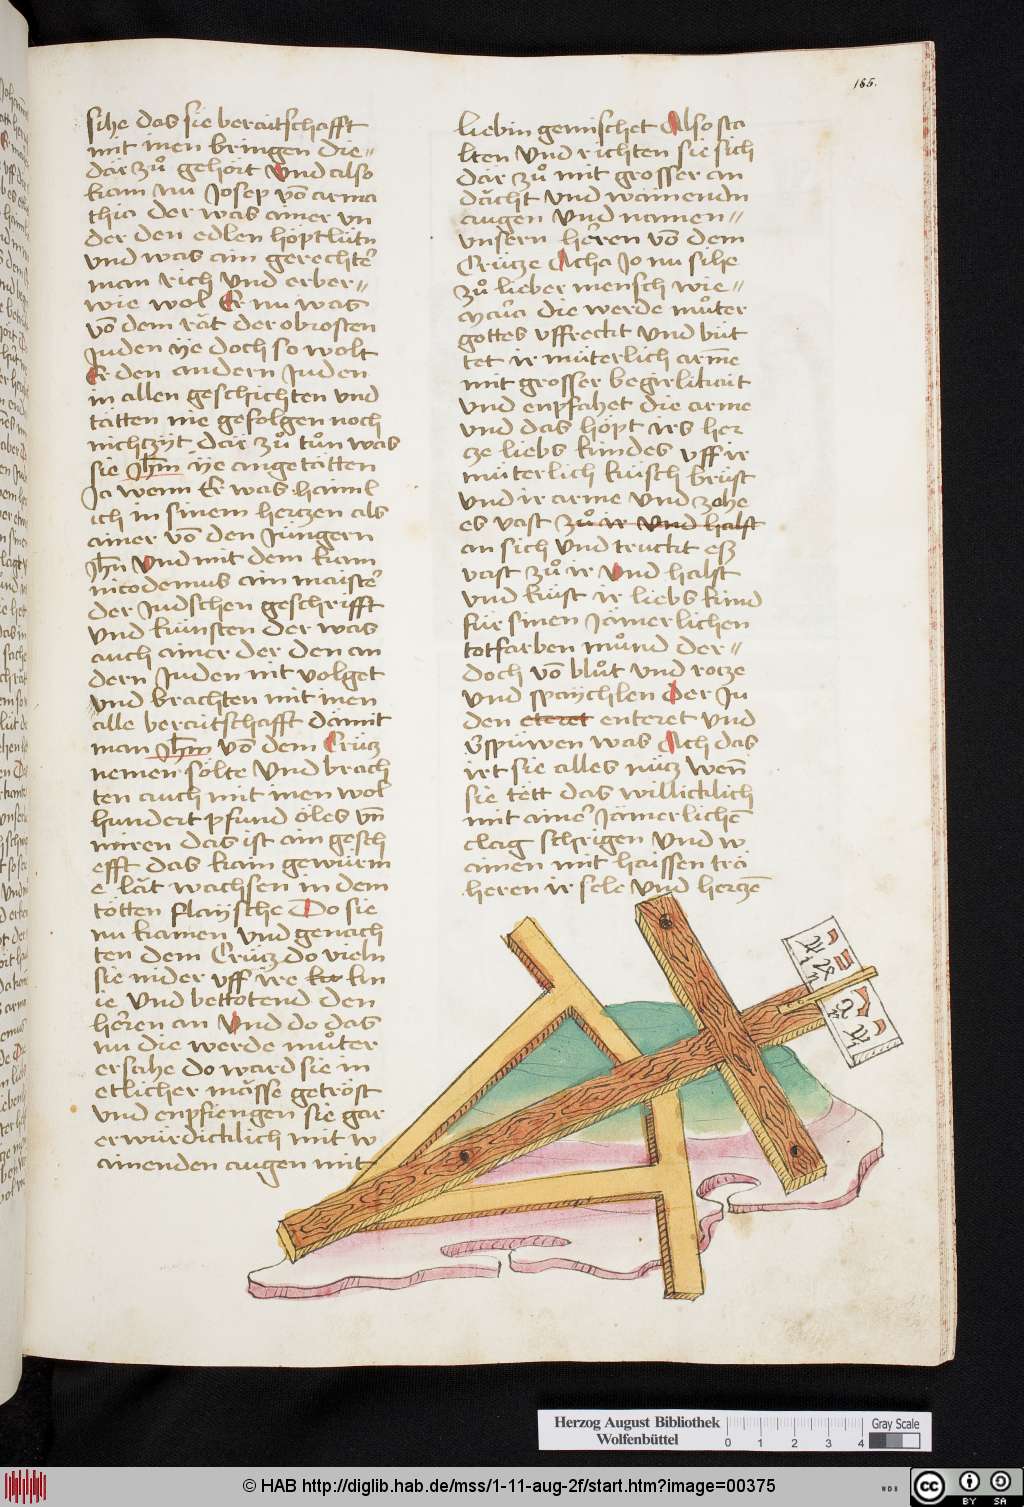 185.
sihe das sie beraitschafft
mit inen bringen die〃
dar zuͦ gehört Vnd also
kam nu Josep võ arma
thia der was ainer vn
der den edlen höptlütn
vnd was ain gerechter
man rich vnd erber〃
wie wol Er nu was
võ dem răt der obrosten
Juden ÿe doch so wolt
Er den andern Juden
in allen geschichten vnd
tätten nie gefolgen noch
nichtzÿt dar zuͦ tuͦn was
sie Jhm̄ ÿe angetätten
Ja wenn Er was haiml
ich in sinem hertzen als
ainer võ den Jüngern
Jhñ Vnd mit dem kam
nicodemus ain maister
der Judschen geschrifft
vnd künsten der was
auch ainer der den an
dern Juden nit volget
vnd brachten mit inen
alle beraitschafft dämit
man Jhm̄ võ dem Crütz
nemen sölte vnd brach
ten auch mit inen wol
hundert pfund öles vñ
mirren das ist ain gesch
efft das kain gewürm
e lăt wachsen in dem
tötten flaÿsche Do sie
nu kamen vnd genäch
ten dem Crütz do vieln
sie nider vff ire kin
ie vnd bettotend den
herren an Vnd do das
nu die werde muͦter
ersahe do ward sie in
etlicher mässe getröst
vnd enpfiengen sie gar
erwürdicklich mit w
ainenden augen mit
liebin gemischet Also sta
lten vnd richten sie sich
dar zuͦ mit grosser an
dächt vnd wainendn
augen vnd namen〃
vnsern herren võ dem
Crütze Acha Jo nu sihe
zuͦ lieber mensch wie〃
die werde muͦter
gottes vffreckt vnd büt
tet ir müterlich armē
mit grosser begirlikait
vnd enpfahet die arme
vnd das höpt irs her
tze liebs kindes vff ir
müterlich küsch brüst
vnd ir arme vnd zohe
es vast zuͦ ir vnd halst
an sich vnd truckt esz
vast zuͦ ir Vnd halst
vnd küst ir liebs kind
für sinen Jämerlichen
totfarben muͦnd der〃
doch võ bluͦt vnd rotze
vnd spaÿchlen Der Ju
den eteret enteret vnd
v̄spüwen was Ach das
irt sie alles nütz weñ
sie tett das willicklich
mit ainer Jämerlichē
clag schrigen vnd w
ainen mit haissen trä
heren ir sele vnd hertzē
Herzog August Bibliothek
Wolfenbüttel
Gray Scale
0 1 2 3 4
© HAB http://diglib.hab.de/mss/1-11-aug-2f/start.htm?image=00375
WDB
cc BY SA